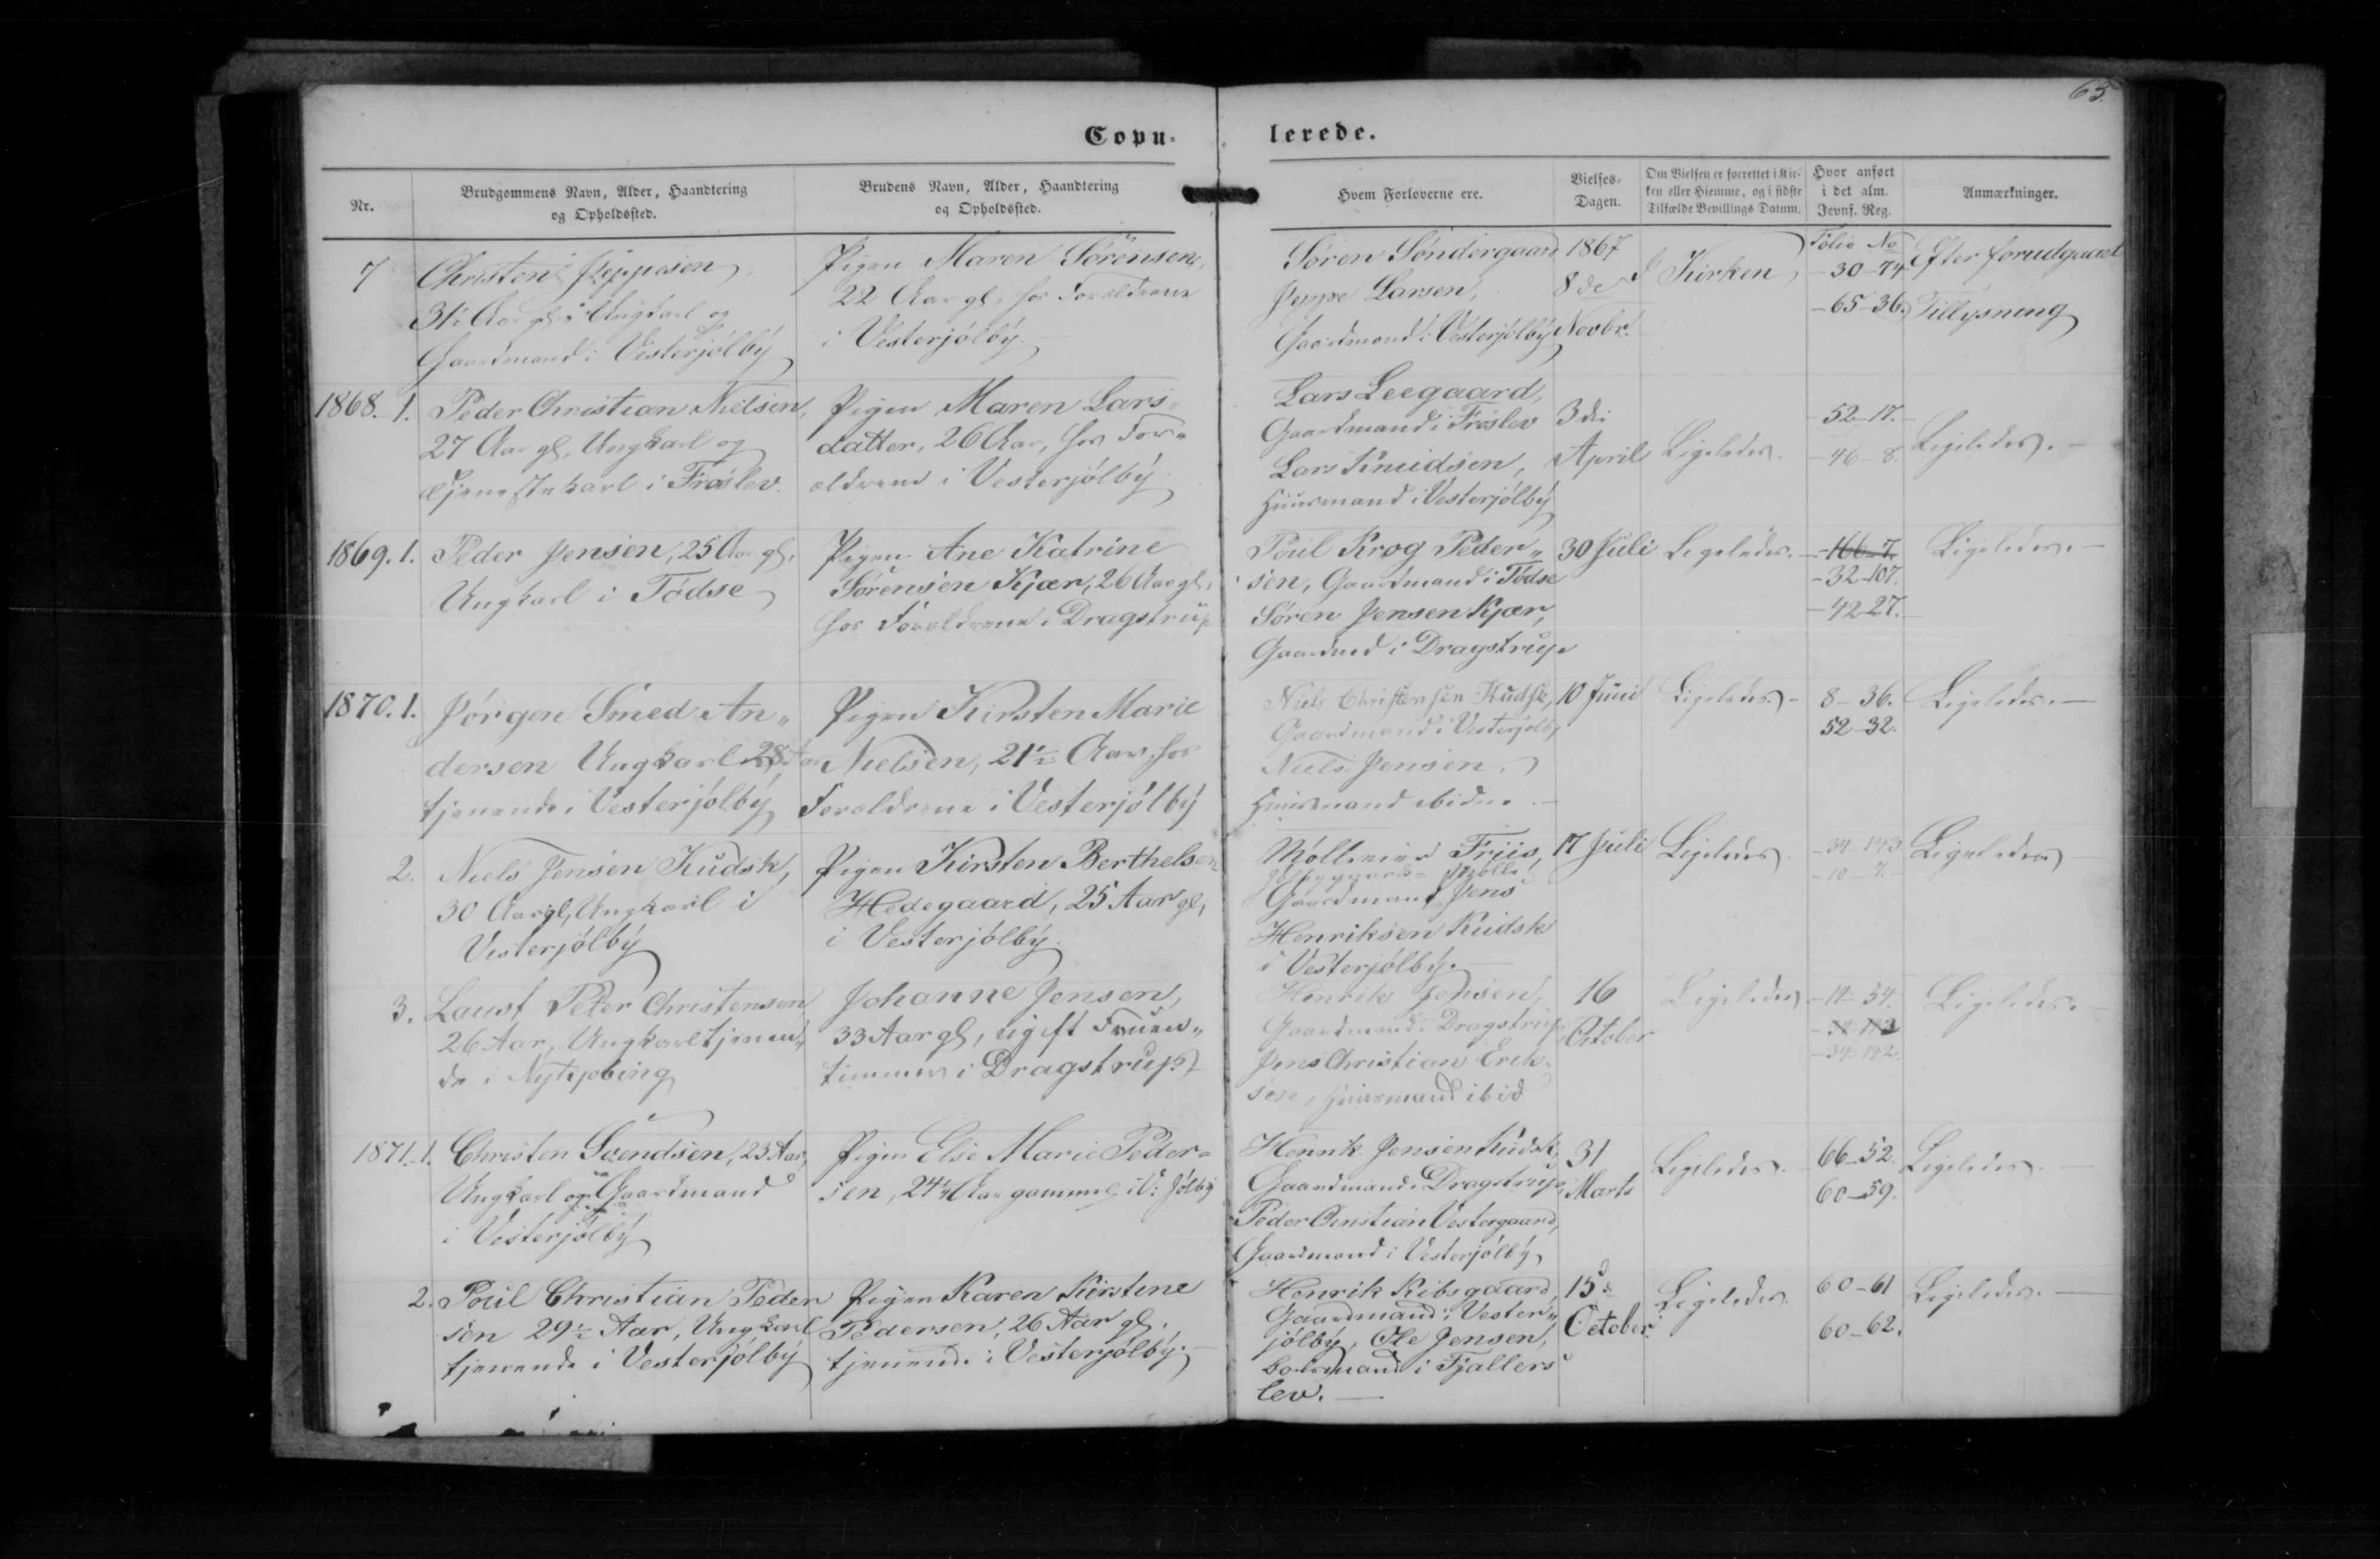 63.
Copu-
lerede.
Nr.
Brudgommens Navn, Alder, Haandtering
og Opholdssted.
Brudens Navn, Alder, Haandtering
og Opholdssted.
Hvem Forloverne ere.
Vielses-
Dagen.
Om Vielsen er forrettet i Kir-
ken eller Hjemme, og i sidste
Tilfælde Bevillings Datum.
Hvor anført
i det alm.
Jevnf. Reg.
Anmærkninger.
7
Christen Jeppesen,
31½ Aar gl. Ungkarl og
Gaardmand i Vesterjölby
Pigen Maren Sörensen,
22 Aar gl, hos Forældrene
i Vesterjölby.
Søren Søndergaard
Jeppe Larsen,
Gaardmænd i Vesterjölby
1867
8de
Novbr.
I Kirken
Folio No
-30-74
-65-36.
Efter forudgaaet
Tillysning
1868. 1.
Peder Christian Nielsen,
27 Aar gl, Ungkarl og
Tjenestekarl i Frøslev.
Pigen Maren Lars-
datter, 26 Aar, hos For-
ældrene i Vesterjölby
Lars Leegaard,
Gaardmand i Frøslev
Lars Knudsen,
Huusmand i Vesterjölby
3die
April
Ligeledes.
-52-17.
-46-8.
Ligeledes.-
1869. 1.
Peder Jensen, 25 Aar gl,
Ungkarl i Tödsø
Pigen Ane Katrine
Sørensen Kjær, 26 Aar gl,
hos Forældrene i Dragstrup
Poul Krog Peder„
sen, Gaardmand i Tødsø
Søren Jensen Kjær,
Gaardmd i Dragstrup
30 Juli
Ligeledes.
-166-7.
-32-107.
-42-27.
Ligeledes.-
1870. 1.
Jörgen Smed An„
dersen Ungkarl 28 Aar
tjenende i Vesterjölby
Pigen Kirsten Marie
Nielsen, 21½ Aar hos
Forældrene i Vesterjölby
Niels Christensen Kudsk,
Gaardmand i Vesterjölby
Niels Jensen,
Huusmand ibidm.-
10 Juni
Ligeledes.-
8-36.
52-32.
Ligeledes.-
2.
Niels Jensen Kudsk,
30 Aar gl, Ungkarl i
Vesterjölby
Pigen Kirsten Berthelsen
Hedegaard, 25 Aar gl,
i Vesterjölby.
Mølleeier Friis,
Jölbygaards-Mølle
Gaardmand Jens
Henriksen Kudsk
i Vesterjölby.-
17 Juli
Ligeledes
-34-143
-10-7.
Ligeledes-
3.
Laust Peter Christensen
26 Aar, Ungkarl tjenen„
de i Nykjøbing
Johanne Jensen,
33 Aar gl, ugift Fruen„
timmer i Dragstrup
Henrik Jensen,
Gaardmand i Dragstrup
Jens Christian Erik-
sen, Huusmand ibid
16
October
Ligeledes
-14-34.
-34-142.
Ligeledes.-
1871. 1.
Christen Svendsen, 23 Aar,
Ungkarl og Gaardmand
i Vesterjölby
Pigen Else Marie Peder-
sen, 24¼ Aar gammel i V. Jölby
Henrik Jensen Kudsk,
Gaardmand i Dragstrup,
Peder Christian Vestergaard,
Gaardmand i Vesterjölby
31
Marts
Ligeledes.
66-52.
60-59.
Ligeledes.-
2.
Poul Christian Peder
sen 29½ Aar, Ungkarl
tjenende i Vesterjölby
Pigen Karen Kirstine
Pedersen, 26 Aar gl,
tjenende i Vesterjölby.-
Henrik Kibsgaard,
Gaardmand i Vester„
jølby, Ole Jensen,
Boelsmand i Fjallers
lev.-
15de
October.
Ligeledes.
60-61
60-62.
Ligeledes.-